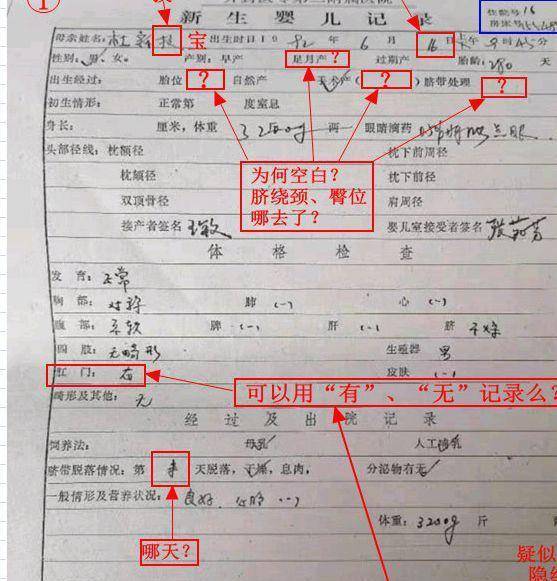 ①
新生婴儿记录
住院号 16
母亲姓名:杜新枝 宝 出生时日 1992年6月16日 上午 时45分
性别:男、女。 产别:早产 足月产? 过期产 胎龄:280天
出生经过: 胎位 ? 自然产 手术产(?)脐带处理 ?
初生情形: 正常第 度窒息
身长: 厘米,体重 3200g 两 眼睛滴药 点眼
为何空白?
脐绕颈、臀位
哪去了?
头部径线:枕额径 枕下前周径
枕颏径 枕下前径
双顶骨径 肩周径
接产者签名 婴儿室接受者签名
体格检查
发育:正常
胸部:对称 肺(-) 心(-)
腹部:柔软 脾(-) 肝(-) 脐 干燥
四肢:无畸形 生殖器 男
肛门:有 皮肤(-)
可以用“有”、“无”记录么?
畸形及其他:无
经过及出院记录
饲养法: 母乳 人工喂乳
脐带脱落情况:第 未 天脱落,干燥,息肉, 分泌物有无
一般情形及营养状况:良好 心肺(-)
体重:3200g 斤
哪天?
疑似